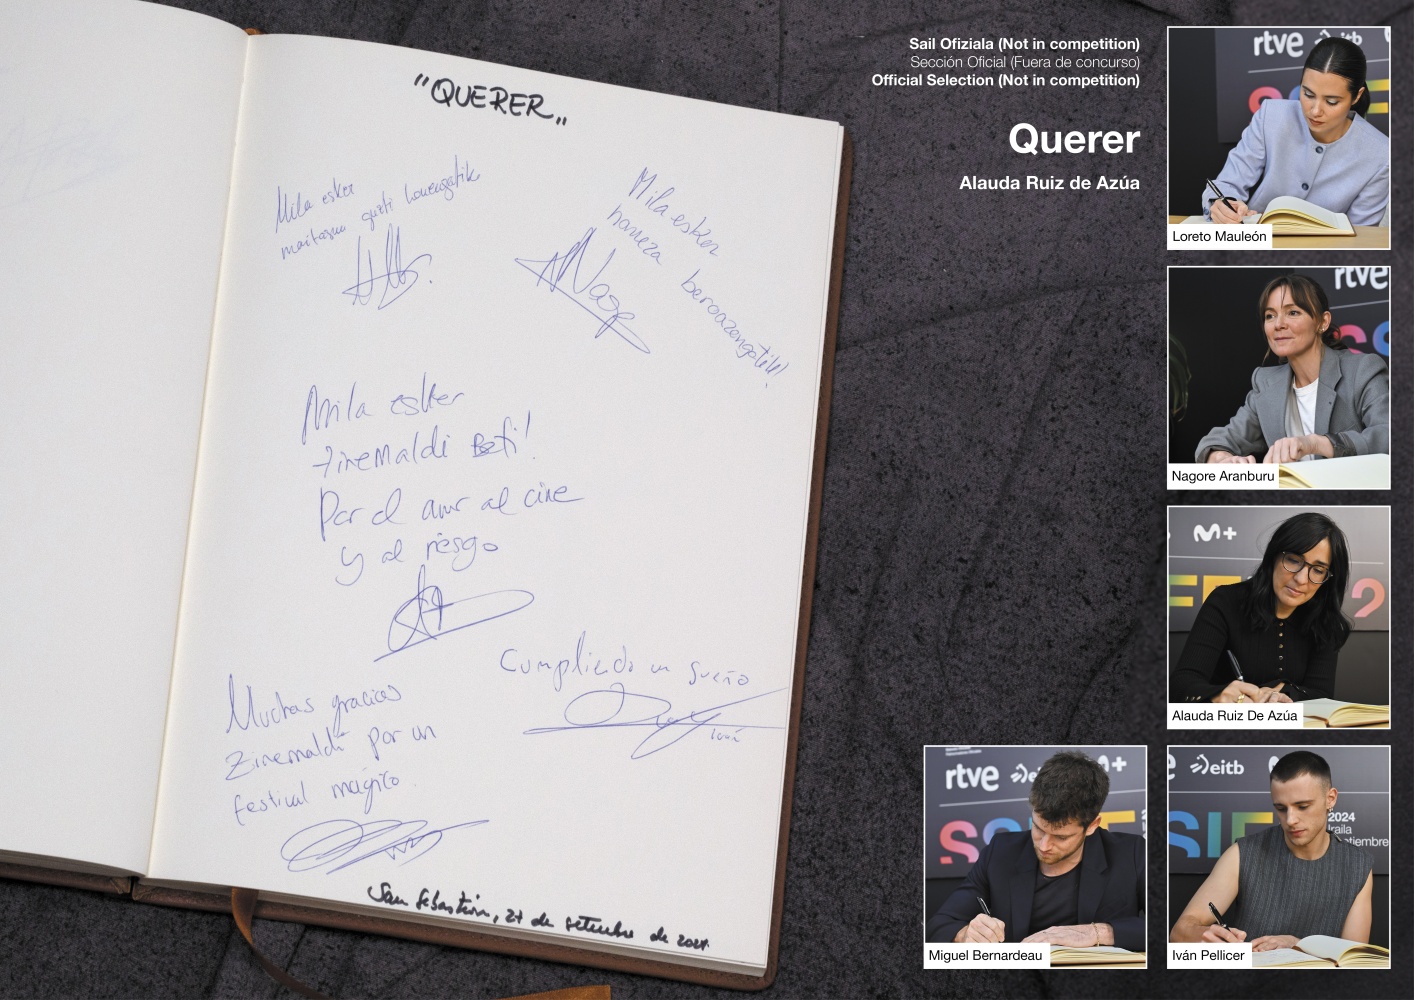 "QUERER"
Mila esker
maitasun guzti honengatik
Mila esker
harrera beroarengatik!
Mila esker
Zinemaldi Beti!
Por el amor al cine
y al riesgo
Cumpliendo un sueño
Muchas gracias
Zinemaldi por un
festival mágico.
San Sebastián, 27 de setiembre de 2024.
Sail Ofiziala (Not in competition)
Sección Oficial (Fuera de concurso)
Official Selection (Not in competition)
Querer
Alauda Ruiz de Azúa
rtve eitb
Loreto Mauleón
rtve
Nagore Aranburu
M+
2
Alauda Ruiz De Azúa
rtve eitb M+
Miguel Bernardeau
eitb
SSIFF
2024
Iraila
Iván Pellicer